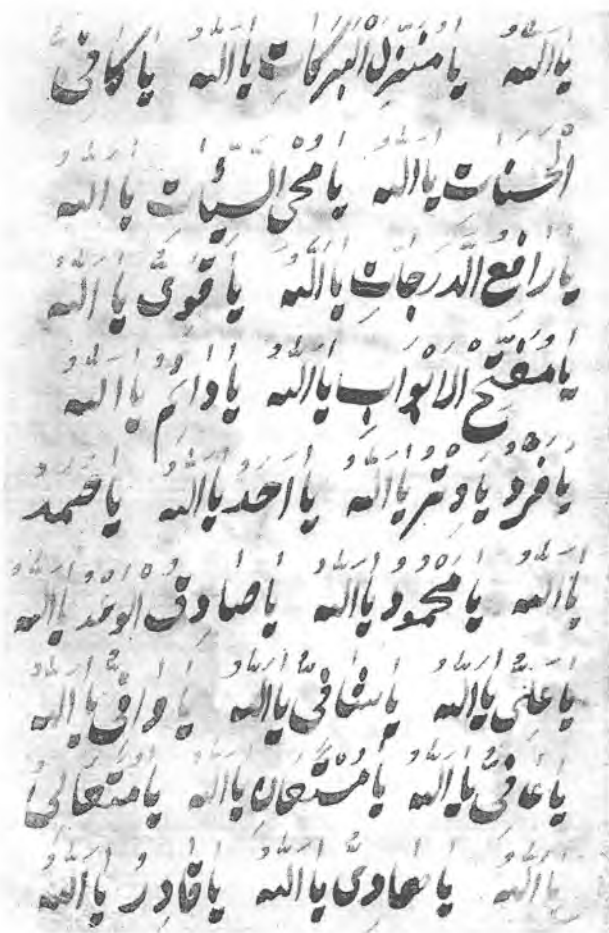 يَا اَللهُ يَا مُنَزِّلَ الْبَرَكَاتِ يَا اَللهُ يَا كَافِىَ
الْحَسَنَاتِ يَا اَللهُ يَا مُحْىَ السَّيِّاٰتِ يَا اَللهُ
يَا رَافِعَ الدَّرَجَاتِ يَا اَللهُ يَا قَوِىُّ يَا اَللهُ
يَا مُفَتِّحَ الْاَبْوَابِ يَا اَللهُ يَا دَائِمُ يَا اَللهُ
يَا فَرْدُ يَا وِتْرُ يَا اَللهُ يَا اَحَدُ يَا اَللهُ يَا صَمَدُ
يَا اَللهُ يَا مَحْمُودُ يَا اَللهُ يَا صَادِقَ الْوَعْدِ يَا اَللهُ
يَا غَنِىُّ يَا اَللهُ يَا شَافِىُ يَا اَللهُ يَا وَافِىُ يَا اَللهُ
يَا عَافِىُ يَا اَللهُ يَا مُسْتَعَانُ يَا اَللهُ يَا مُتَعَالِىُ
يَا اَللهُ يَا هَادِىُ يَا اَللهُ يَا قَادِرُ يَا اَللهُ